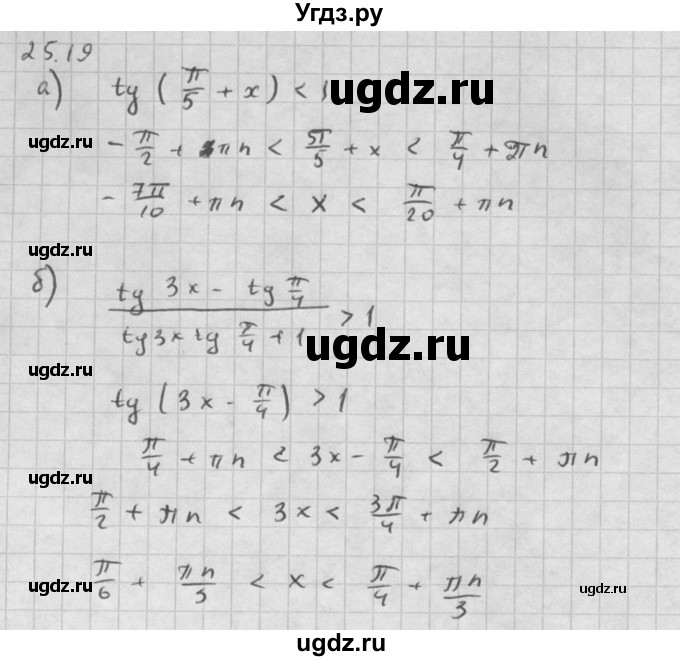 Угдз.ру
25.19
а) tg (π/5 + x) < 1
ugdz.ru
-π/2 + πn < 5π/5 + x < π/4 + πn
-7π/10 + πn < x < π/20 + πn
ugdz.ru
б) (tg 3x - tg π/4)/(tg3x tg π/4 + 1) > 1
ugdz.ru
ugdz.ru
tg (3x - π/4) > 1
π/4 + πn < 3x - π/4 < π/2 + πn
ugdz.ru
π/2 + πn < 3x < 3π/4 + πn
π/6 + πn/3 < x < π/4 + πn/3
ugdz.ru
ugdz.ru
ugdz.ru